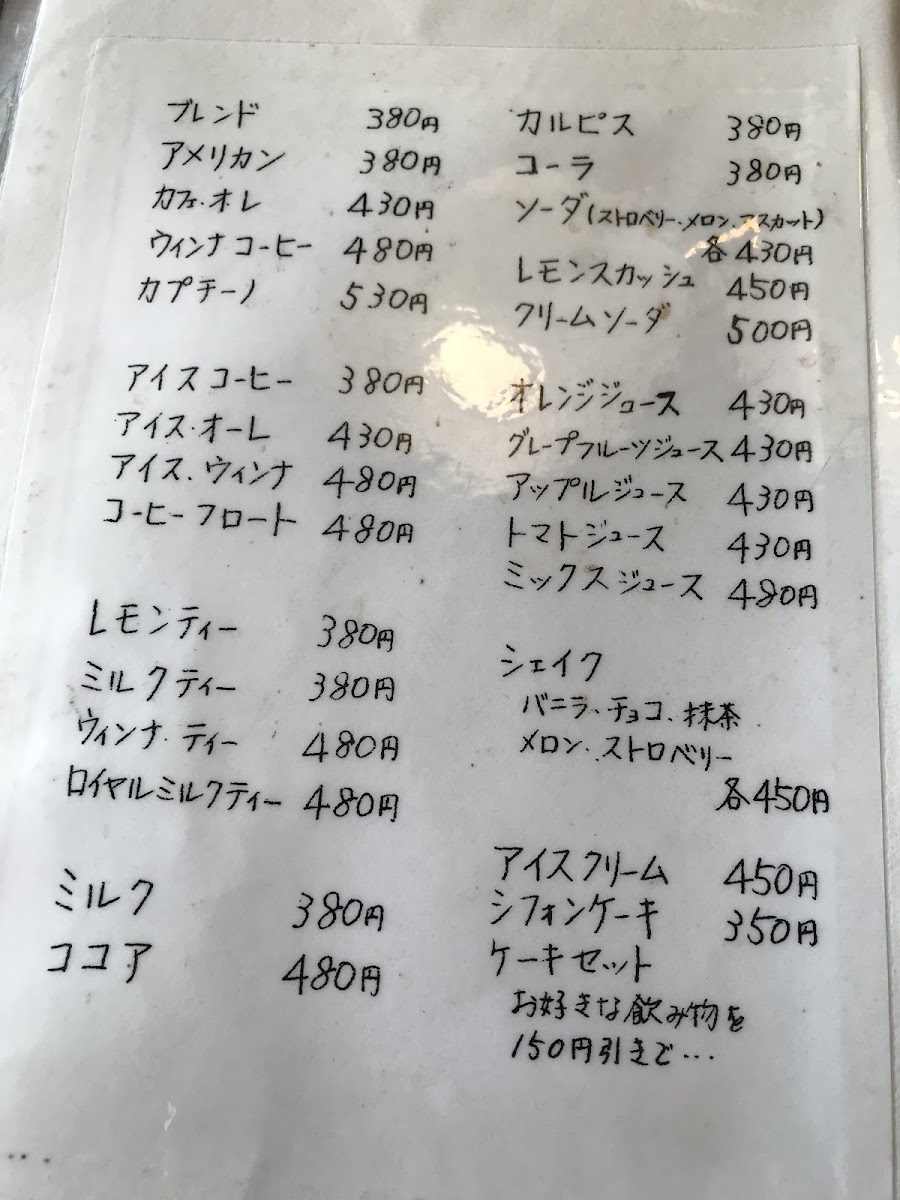 ブレンド 380円
アメリカン 380円
カフェ・オレ 430円
ウィンナコーヒー 480円
カプチーノ 530円
アイスコーヒー 380円
アイス・オーレ 430円
アイス・ウィンナ 480円
コーヒーフロート 480円
レモンティー 380円
ミルクティー 380円
ウィンナ・ティー 480円
ロイヤルミルクティー 480円
ミルク 380円
ココア 480円
カルピス 380円
コーラ 380円
ソーダ(ストロベリー・メロン・マスカット)
各430円
レモンスカッシュ 450円
クリームソーダ 500円
オレンジジュース 430円
グレープフルーツジュース 430円
アップルジュース 430円
トマトジュース 430円
ミックスジュース 480円
シェイク
バニラ、チョコ、抹茶
メロン、ストロベリー
各450円
アイスクリーム 450円
シフォンケーキ 350円
ケーキセット
お好きな飲み物を
150円引きで…